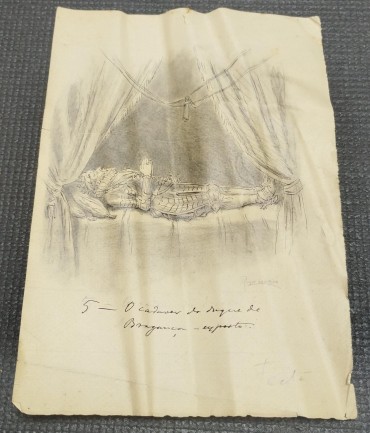 5 — O cadaver do duque de
Bragança — exposto.